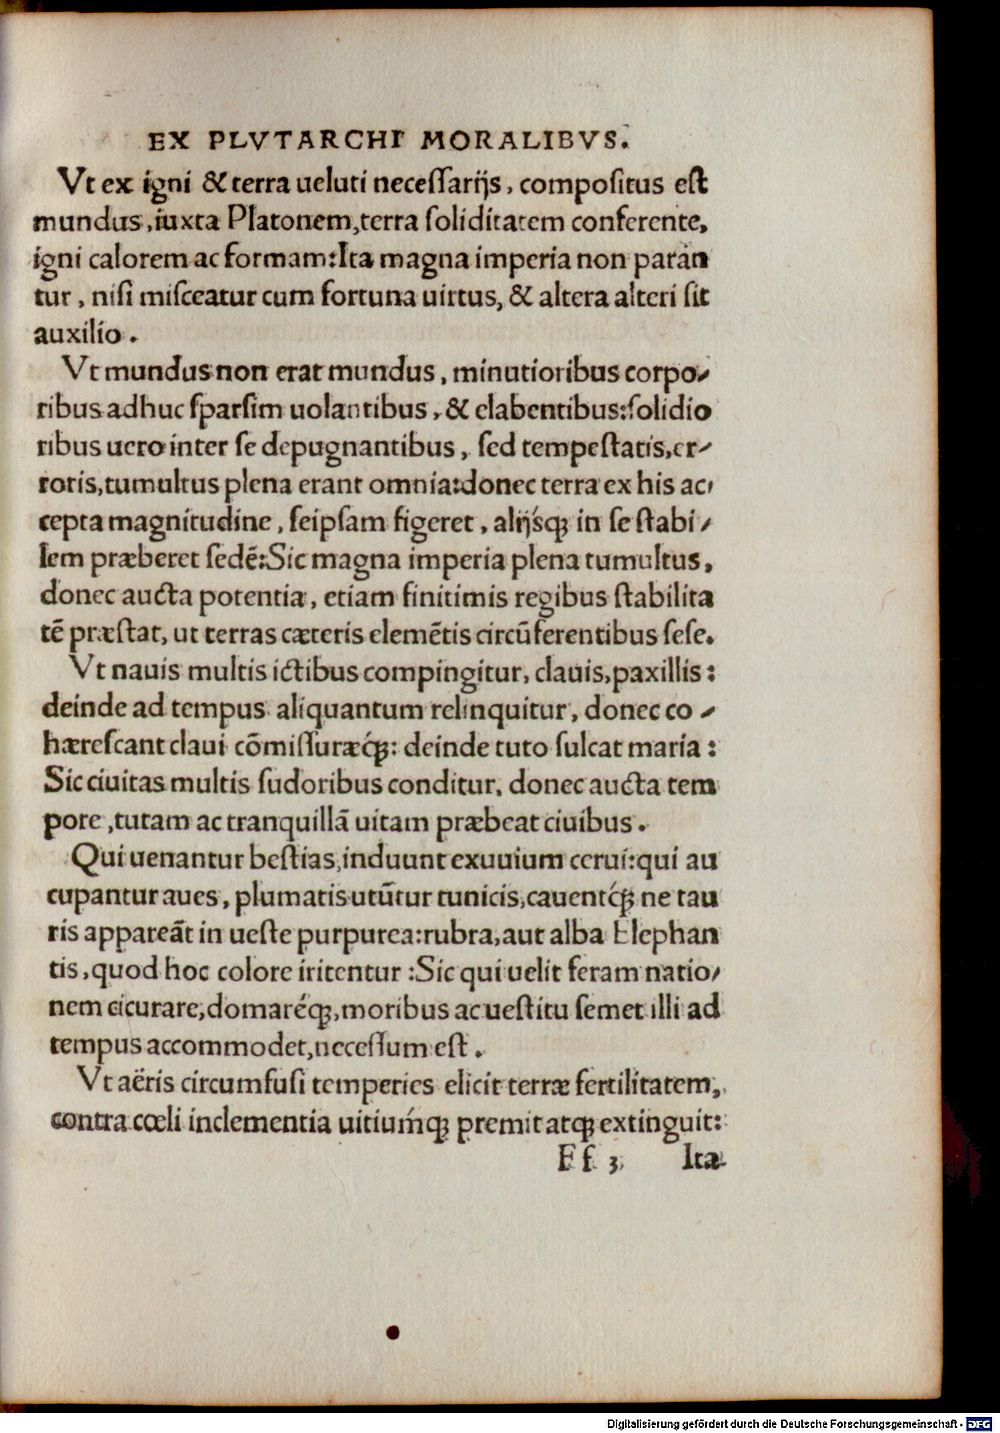 EX PLVTARCHI MORALIBVS.
Vt ex igni & terra ueluti necessarijs, compositus est
mundus, iuxta Platonem, terra soliditatem conferente,
igni calorem ac formam: Ita magna imperia non parān
tur, nisi misceatur cum fortuna uirtus, & altera alteri sit
auxilio.
Vt mundus non erat mundus, minutioribus corpo-
ribus adhuc sparsim uolantibus, & elabentibus: solidio
ribus uero inter se depugnantibus, sed tempestatis, er-
roris, tumultus plena erant omnia: donec terra ex his ac-
cepta magnitudine, seipsam figeret, alijsq́ꝫ in se stabi-
lem præberet sedē: Sic magna imperia plena tumultus,
donec aucta potentia, etiam finitimis regibus stabilita
tē præstat, ut terras cæteris elemētis circūferentibus sese.
Vt nauis multis ictibus compingitur, clauis, paxillis:
deinde ad tempus aliquantum relinquitur, donec co-
hærescant claui cōmissuræq́ꝫ: deinde tuto sulcat maria:
Sic ciuitas multis sudoribus conditur, donec aucta tem
pore, tutam ac tranquillā uitam præbeat ciuibus.
Qui uenantur bestias, induunt exuuium cerui: qui au
cupantur aues, plumatis utūtur tunicis, cauentq́ꝫ ne tau
ris appareāt in ueste purpurea: rubra, aut alba Elephan
tis, quod hoc colore iritentur: Sic qui uelit feram natio-
nem cicurare, domareq́ꝫ, moribus ac uestitu semet illi ad
tempus accommodet, necessum est.
Vt aëris circumfusi temperies elicit terræ fertilitatem,
contra cœli inclementia uitiumq́ꝫ premit atqꝫ extinguit:
Ff 3 Ita
Digitalisierung gefördert durch die Deutsche Forschungsgemeinschaft - DFG